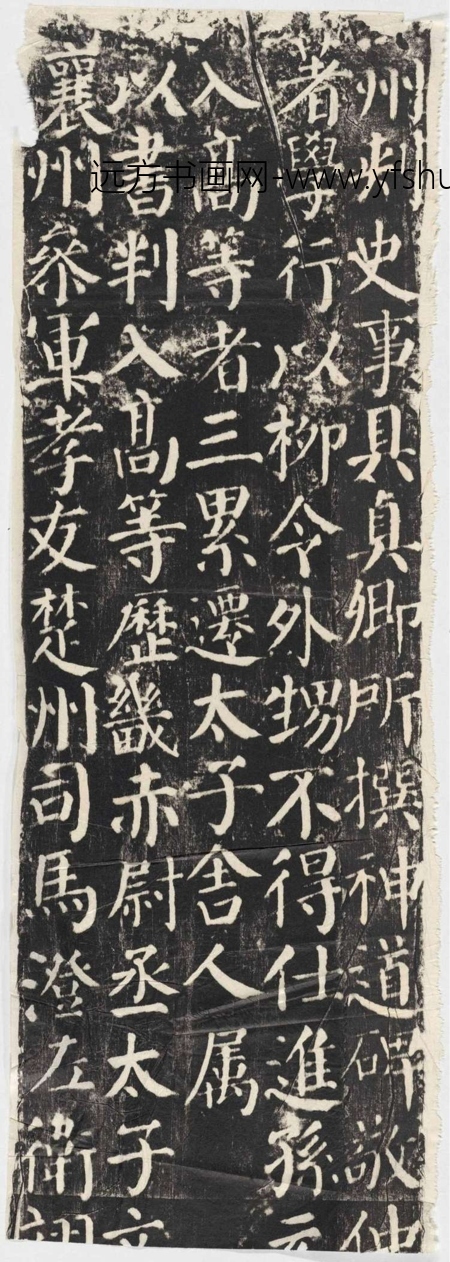 州刺史事具真卿所撰神道碑敬仲
著學行以柳令外甥不得仕進孫元
入高等者三累遷太子舍人属
以書判入高等歷畿赤尉丞太子文
襄州叅軍孝友楚州司馬澄左衛翊
远方书画网-www.yfshu